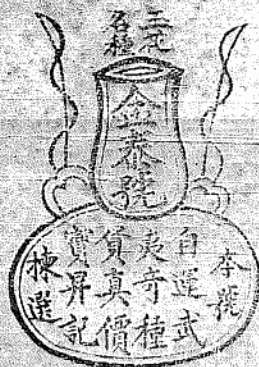 名種
金泰號
本號
自運武
夷奇種
貨真價
實昇記
揀選